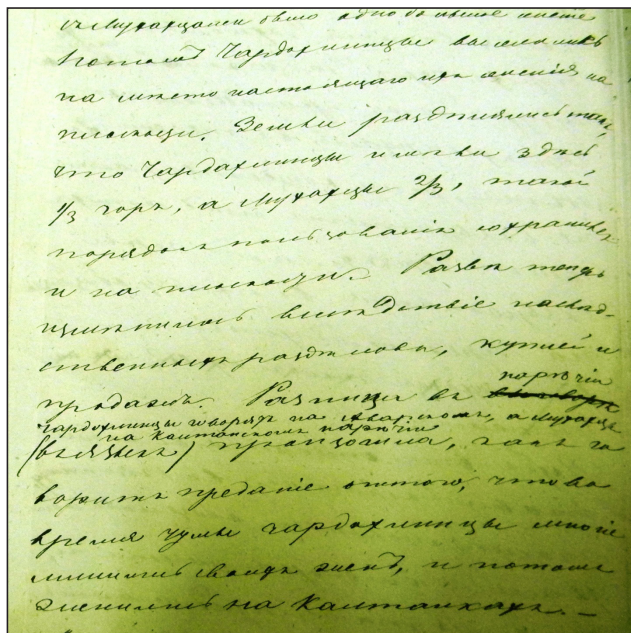 съ Мухахцами было одно большое имѣніе
потомъ Чардахлинцы выселились
на мѣсто настоящаго ихъ житья на
плоскости. Земли раздѣлялись такъ,
что Чардахлинцы имѣли здѣсь
1/3 горъ, а Мухахцы 2/3, такой
порядокъ пользованія сохранился
и на плоскости. Развѣ теперь
измѣнилось вслѣдствіе наслѣд-
ственныхъ раздѣловъ, куплей и
продажъ. Разница въ нарѣчіи
чардахлинцы говорятъ на аварскомъ, а Мухахцы
на каптанскомъ нарѣчіи
(въ языкѣ) произошла, какъ го
воритъ преданіе оттого, что во
время чумы чардахлинцы многіе
лишились своихъ женъ, и потомъ
женились на Каптанкахъ. —